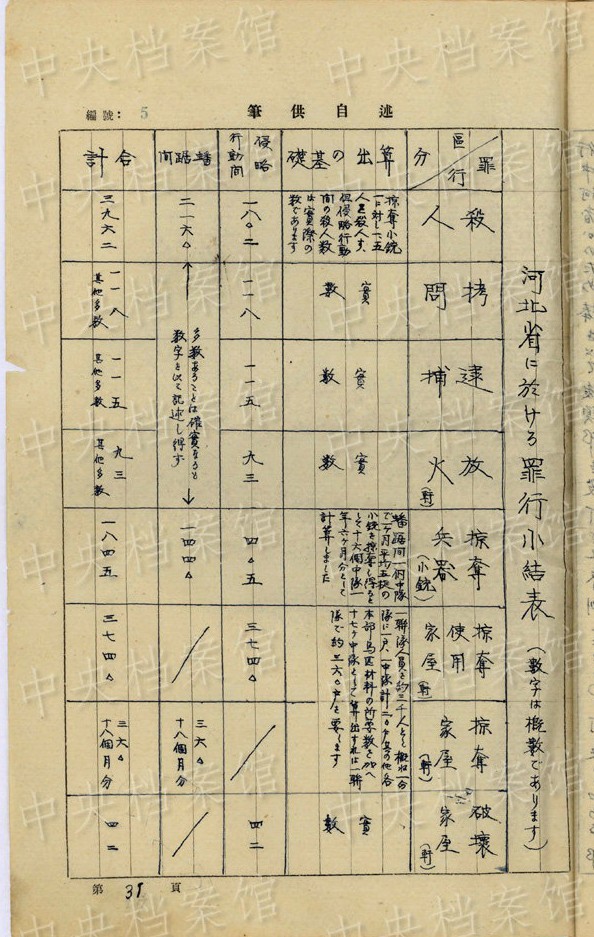 編號: 5
筆供自述
河北省に於ける罪行小結表(数字は概数であります)
罪行
区分
殺人
拷問
逮捕
放火(軒)
掠奪兵器(小銃)
掠奪使用家屋(軒)
掠奪家屋(軒)
破壊家屋(軒)
算出の基礎
掠奪小銃
一に対した五
人を殺人す、
但侵略行動
間の殺人数
は実際の
数であります
實数
實数
實数
蟠踞間一個中隊
で一ヶ月平均五挺の
小銃を掠奪し得ると
して十六個中隊一
年六ヶ月分として
計算しました
一聯隊人員を約三千人として概ね一分
隊に一戸、一中隊計二〇戸其の他各
本部馬匹材料の所要数を加へ
十七ヶ中隊として算出すれば一聯
隊で約三六〇戸を要します
實数
侵略行動間
一八〇二
一一八
一一五
九三
四〇五
三七四〇
四二
蟠踞間
二一六〇
多数あることは確實なるも
数字を以て記述し得ず
一四四〇
三六〇
十八個月分
合計
三九六二
一一八
其他多数
一一五
其他多数
九三
其他多数
一八四五
三七四〇
三六〇
十八個月分
四二
第 39 頁
中央档案馆